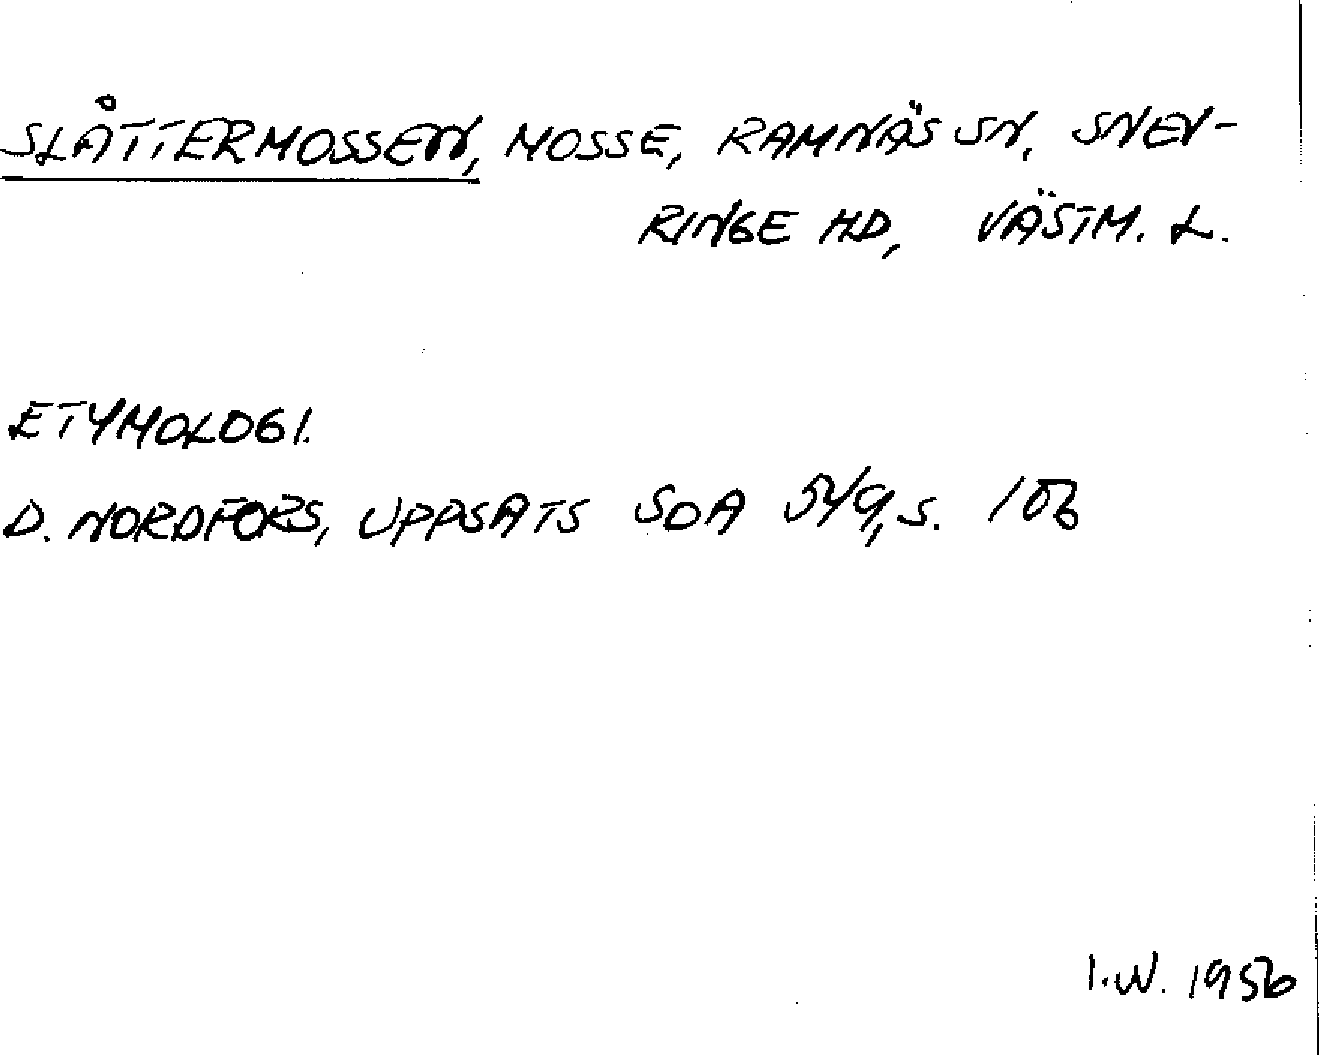 SLÅTTERMOSSEN, MOSSE, RAMNÄS SN, SNEV-
RINGE HD, VÄSTM. L.
ETYMOLOGI.
D. NORDFORS, UPPSATS SOA 54/9, s. 106
I.W. 1956